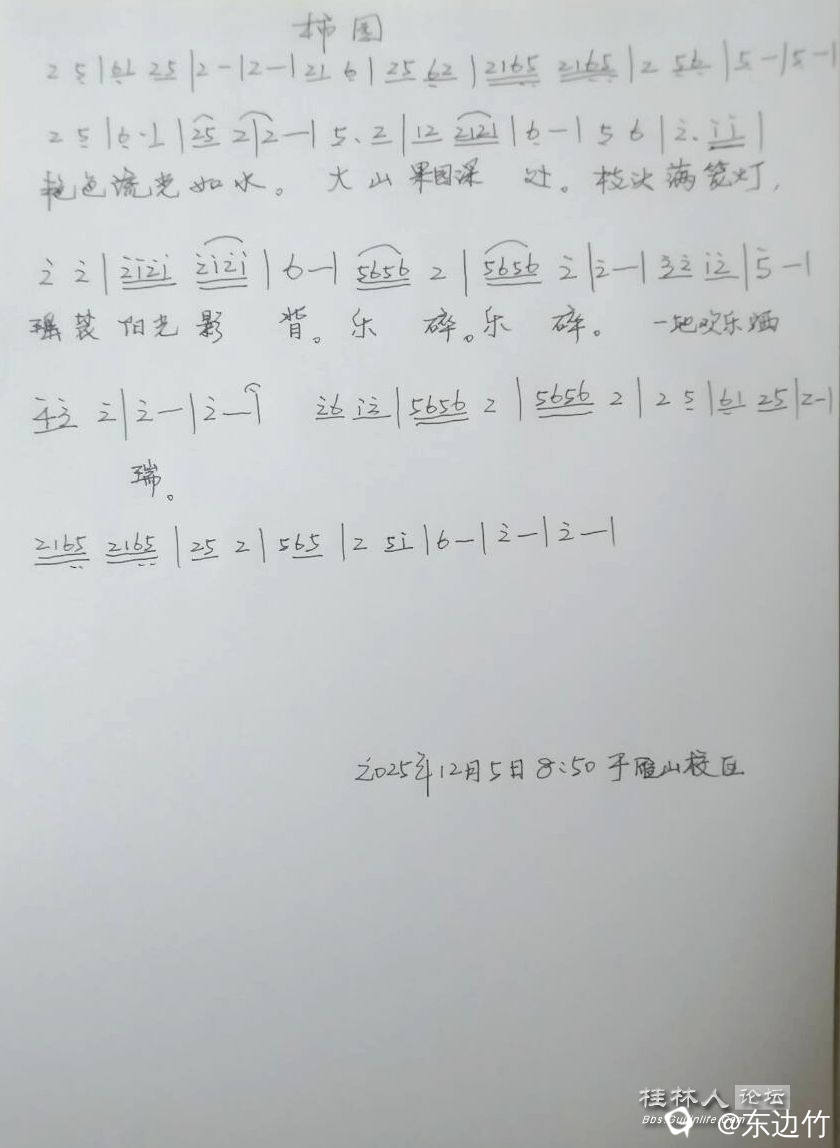 柿园
2 5 | 61 25 | 2 - | 2 - | 21 6 | 25 62 | 2165 2165 | 2 56 | 5 - | 5 - |
2 5 | 6·1 | 25 2 | 2 — | 5. 2 | 12 2121 | 6 — | 5 6 | 2. 11 |
艳色流光如水。大山果园深处。枝头满笼灯,
2 2 | 2121 2121 | 6 — | 5656 2 | 5656 2 | 2 — | 32 12 | 5 — |
瑶装阳光影背。乐碎。乐碎。一地欢乐晒
43 2 | 2 — | 2 — | 26 12 | 5656 2 | 5656 2 | 2 5 | 61 25 | 2 - |
瑞。
2165 2165 | 25 2 | 565 | 2 51 | 6 — | 2 — | 2 — |
2025年12月5日 8:50 于雁山校区
桂林人论坛
Bbs.Guilinlife.Com
@东边竹